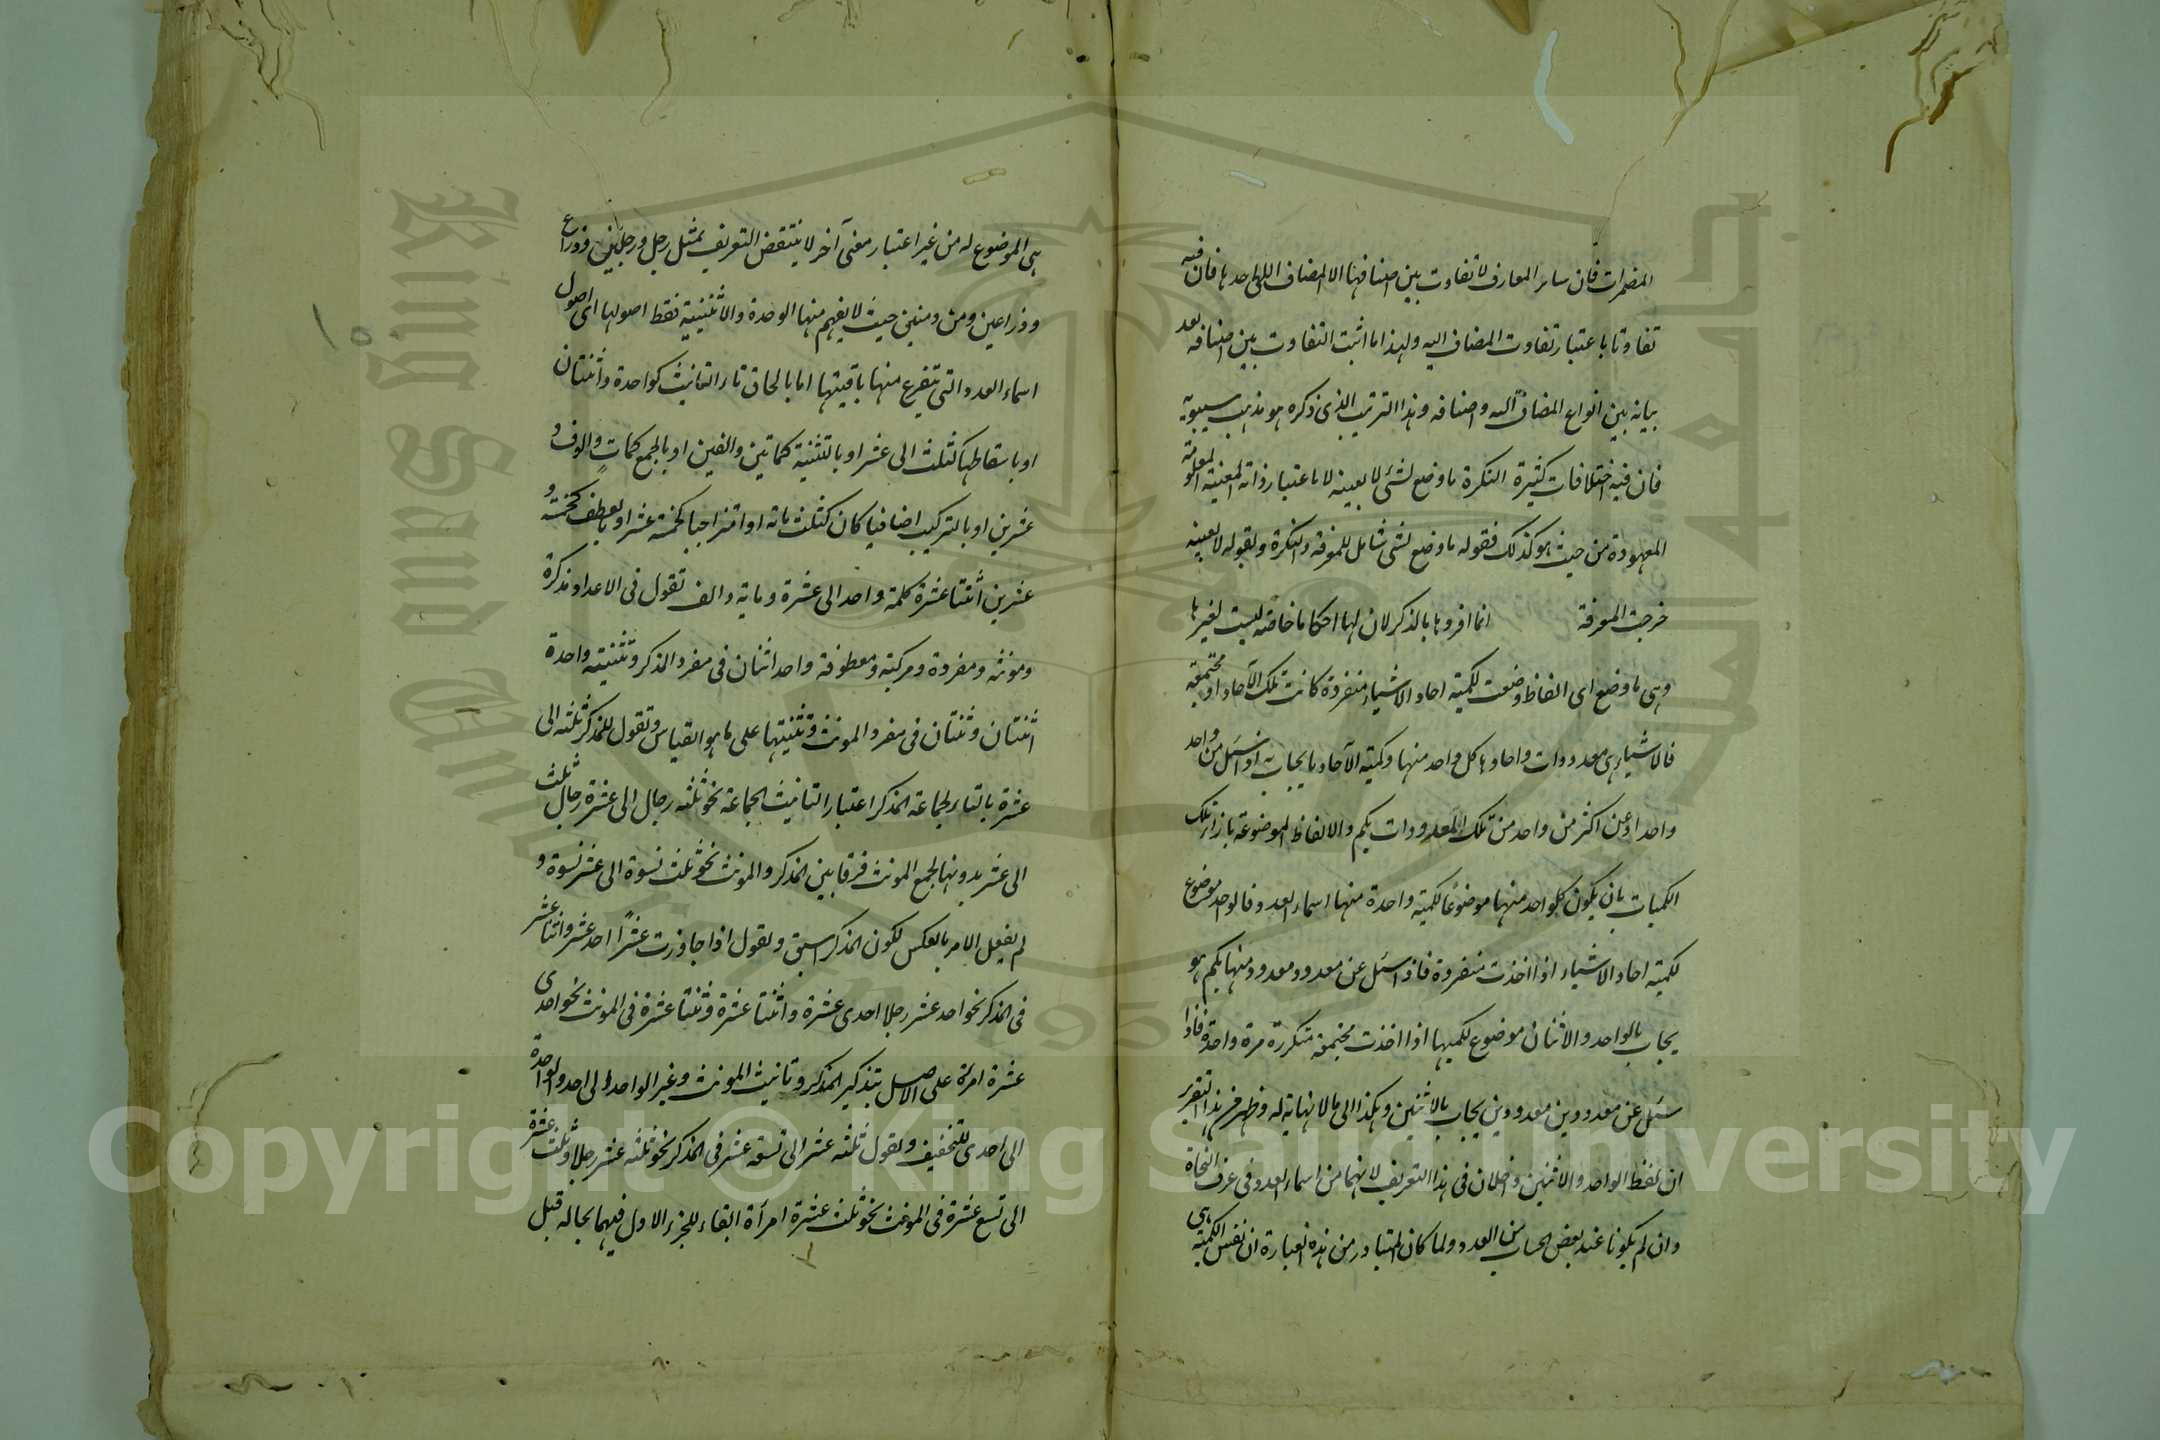 المضمرات فان سائر المعارف لا تفاوت بين اصنافها الا المضاف الى احدها فان فيه
تفاوتا باعتبار تفاوت المضاف اليه ولهذا ما اثبت التفاوت بين اصنافه بعد
بيانه بين انواع المضاف اليه واصنافه وهذا الترتيب الذى ذكره هو مذهب سيبويه
فان فيه اختلافات كثيرة النكرة ما وضع لشئ لا بعينه لا باعتبار ذاته المعينة المعلومة
المعهودة من حيث هو كذلك فقوله ما وضع لشئ شامل للمعرفة والنكرة وبقوله لا بعينه
خرجت المعرفة انما افردها بالذكر لان لها احكاما خاصة ليست لغيرها
وهى ما وضع اى الفاظ وضعت لكمية احاد الاشياء منفردة كانت تلك الآحاد او مجتمعة
فالاشياء هى معدودات واحادها كل واحد منها وكمية الآحاد ما يجاب به اذا سئل عن واحد
واحد او عن اكثر من واحد من تلك المعدودات بكم والالفاظ الموضوعة بازاء تلك
الكميات بان يكون كل واحد منها موضوعا لكمية واحدة منها اسماء العدد فالواحد موضوع
لكمية احاد الاشياء اذا اخذت منفردة فاذا سئل عن معدود معدود منها بكم هو
يجاب بالواحد والاثنان موضوع لكميها اذا اخذت مجتمعة متكررة مرة واحدة فاذا
سئل عن معدودين معدودين يجاب بالاثنين وهكذا الى ما لا نهاية له وظهر من هذا التقرير
ان لفظ الواحد والاثنين داخلان فى هذا التعريف لانهما من اسماء العدد فى عرف النحاة
وان لم يكونا عند بعض الحساب من العدد ولما كان المتبادر من هذه العبارة ان نفس الكمية هى
هى الموضوع له من غير اعتبار معنى آخر لا ينتقض التعريف بمثل رجل ورجلين وذراع
وذراعين ومن ومنين حيث لا يفهم منها الوحدة والاثنينية فقط اصولها اى اصول
اسماء العدد التى يتفرع منها باقيتها اما بالحاق تاء التانيث كواحدة واثنتان
او باسقاطها كثلث الى عشر او بالتثنية كمأتين والفين او بالجمع كمات والوف و
عشرين او بالتركيب اضافيا كان كثلثماته او امتزاجيا كخمسة عشر او بالعطف كخمسة و
عشرين اثنتا عشرة كلمة واحد الى عشرة وماية والف تقول فى الاعداد مذكرة
ومونثه ومفردة ومركبة ومعطوفة واحد اثنان فى مفرد المذكر وتثنيته واحدة
اثنتان وثنتان فى مفرد المونث وتثنيتها على ما هو القياس وتقول للمذكر ثلثه الى
عشرة بالتاء لجماعة المذكر اعتبار التانيث الجماعة نحو ثلثه رجال الى عشرة رجال ثلث
الى عشر بدونها لجمع المونث فرقا بين المذكر والمونث نحو ثلث نسوة الى عشر نسوة و
لم يفعل الامر بالعكس لكون المذكر اسبق وتقول اذا جاوزت عشرًا احد عشر واثنا عشر
فى المذكر نحو احد عشر رجلا احدى عشرة واثنتا عشرة وثنتا عشرة فى المونث نحو احدى
عشرة امراة على الاصل بتذكير المذكر وتانيث المونث وغير الواحد الى احد والواحدة
الى احدى للتخفيف وتقول ثلثه عشر الى تسعة عشر فى المذكر نحو ثلثه عشر رجلا وثلث عشرة
الى تسع عشرة فى المونث نحو ثلث عشرة امرأة ابقاء للجزء الاول فيهما بحاله قبل
Copyright © King Saud University
King Saud University
1957